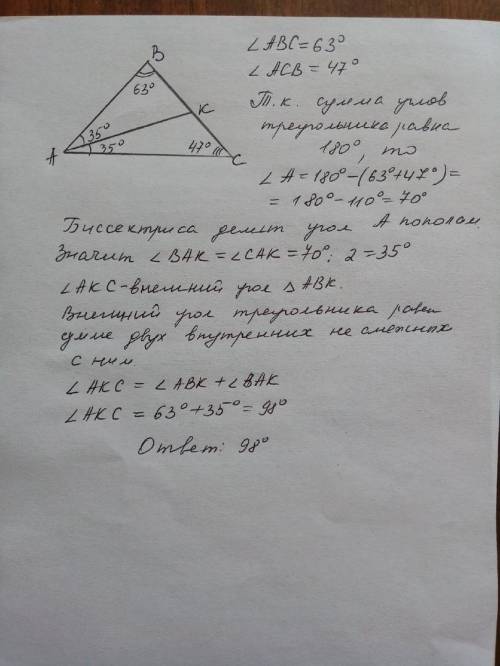 ∠ABC=63°
∠ACB = 47°
B
63°
K
35°
35°
47°
A
C
Т.к. сумма углов
треугольника равна
180°, то
∠A=180°-(63°+47°)=
= 180°-110°=70°
Биссектриса делит угол A пополам.
Значит ∠BAK=∠CAK=70°: 2=35°
∠AKC-внешний угол △ABK.
Внешний угол треугольника равен
сумме двух внутренних не смежных
с ним.
∠AKC = ∠ABK+∠BAK
∠AKC = 63°+35°=98°
Ответ: 98°